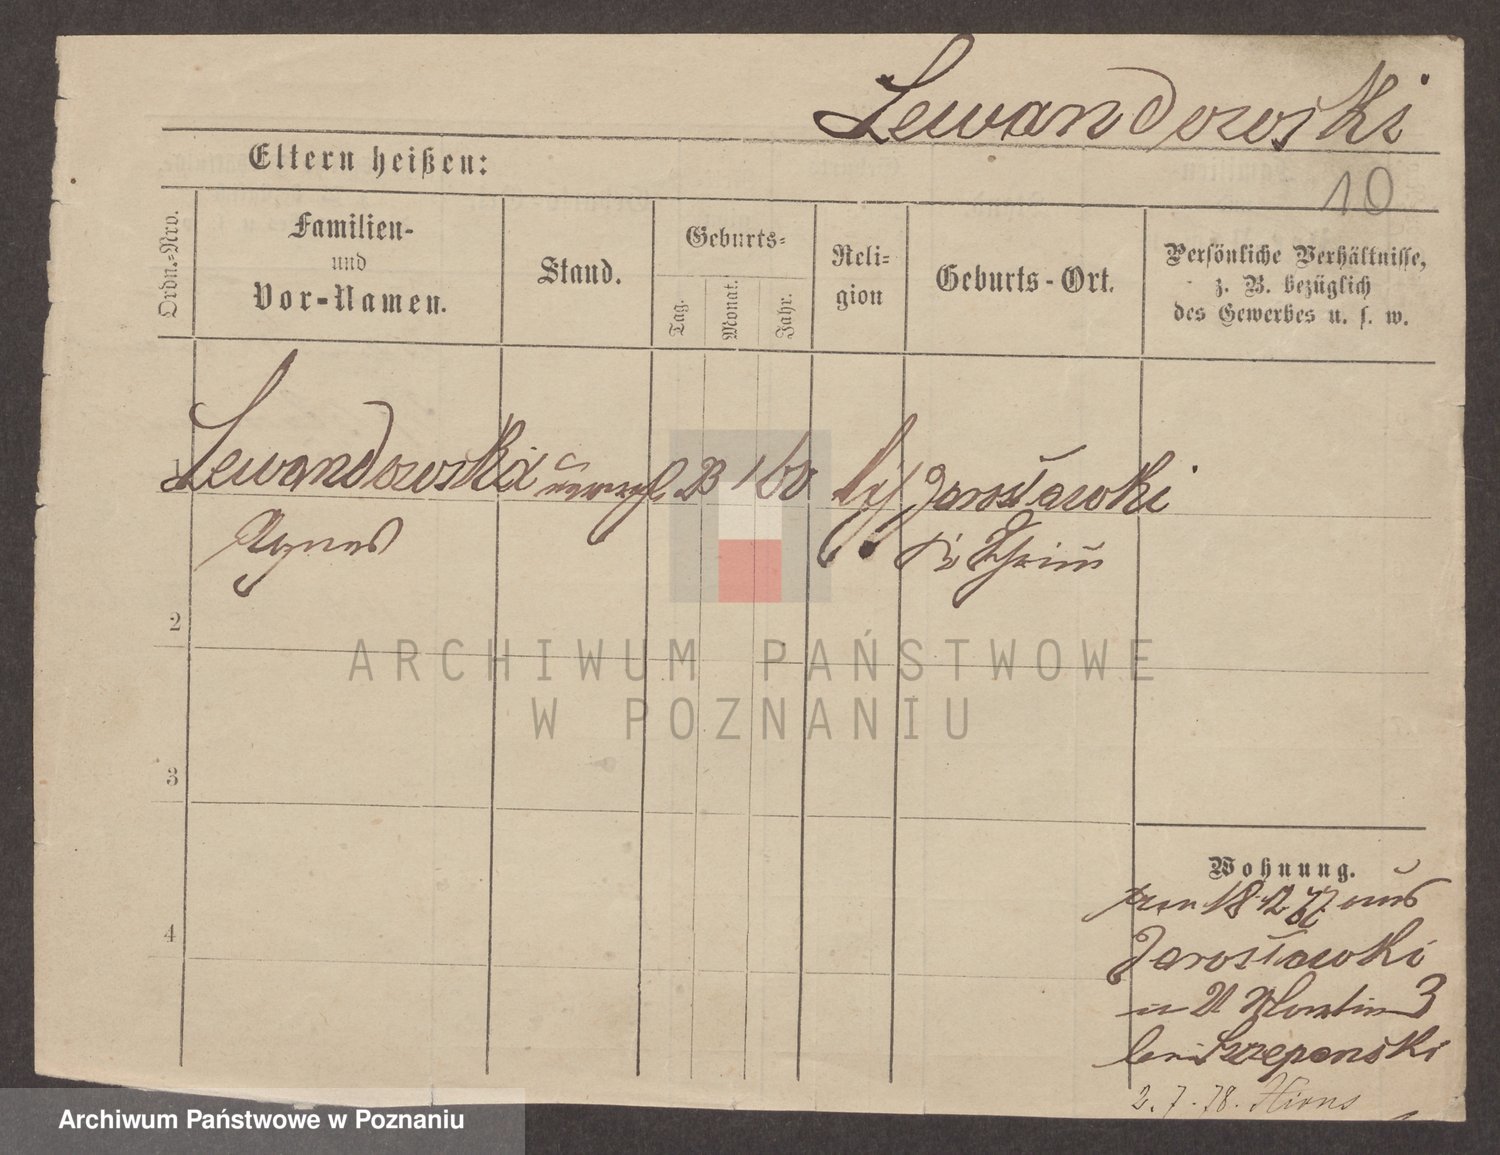 Lewandowski
Eltern heißen:
10
Ordn.-Nro.
Familien-
und
Vor-Namen.
Stand.
Geburts-
Tag.
Monat.
Jahr.
Reli-
gion
Geburts-Ort.
Persönliche Verhältnisse,
z. B. bezüglich
des Gewerbes u. s. w.
1
Lewandowska unverh. 23 1 60 kth Jarosławki
Agnes Kr Schrim
2
3
4
Wohnung.
18 12 77 aus
Jarosławki
n St Martin 3
bei Szczepanski
2.7.78.
ARCHIWUM PAŃSTWOWE
W POZNANIU
Archiwum Państwowe w Poznaniu